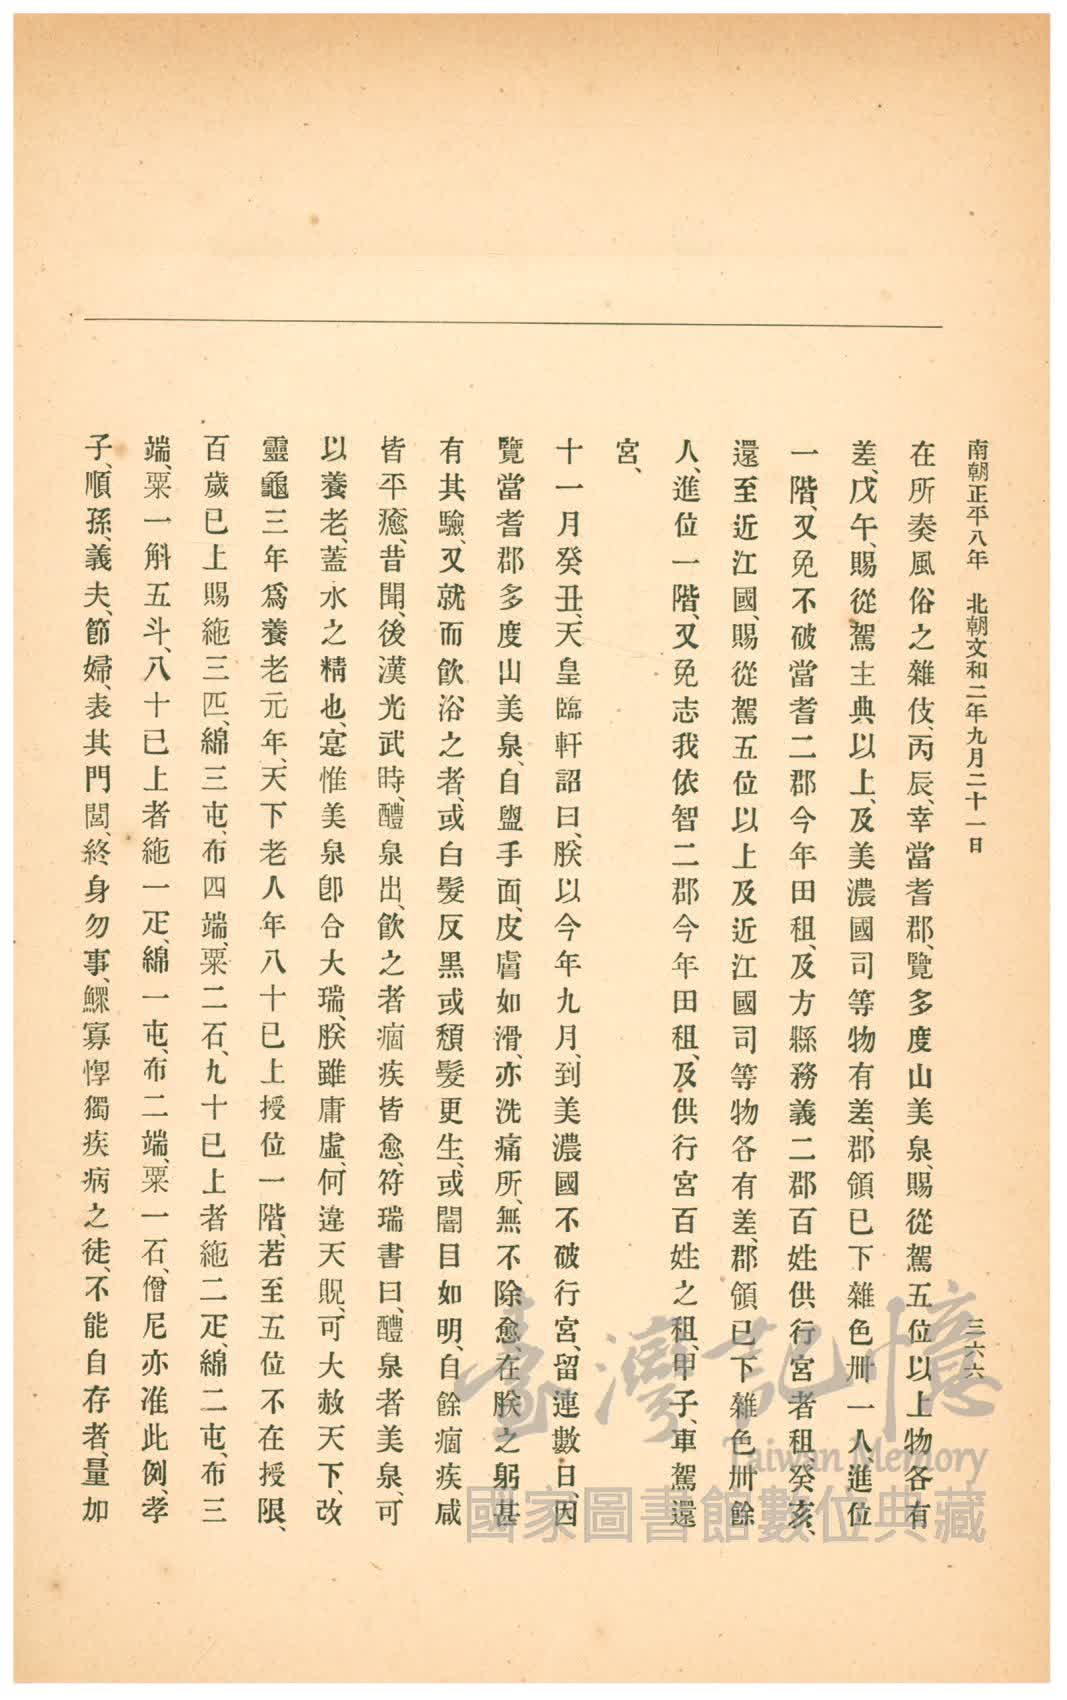 南朝正平八年　北朝文和二年九月二十一日　三六六
在所奏風俗之雜伎、丙辰、幸當耆郡、覽多度山美泉、賜從駕五位以上物各有
差、戊午、賜從駕主典以上、及美濃國司等物有差、郡領已下雜色卌一人、進位
一階、又免不破當耆二郡今年田租、及方縣務義二郡百姓供行宮者租、癸亥、
還至近江國、賜從駕五位以上及近江國司等物各有差、郡領已下雜色卌餘
人、進位一階、又免志我依智二郡今年田租、及供行宮百姓之租、甲子、車駕還
宮、
十一月癸丑、天皇臨軒詔曰、朕以今年九月、到美濃國不破行宮、留連數日、因
覽當耆郡多度山美泉、自盥手面、皮膚如滑、亦洗痛所、無不除愈、在朕之躬甚
有其驗、又就而飲浴之者、或白髮反黑或頹髮更生、或闇目如明、自餘痼疾咸
皆平癒、昔聞、後漢光武時、醴泉出、飲之者痼疾皆愈、符瑞書曰、醴泉者美泉、可
以養老、蓋水之精也、寔惟美泉卽合大瑞、朕雖庸虛、何違天貺、可大赦天下、改
靈龜三年爲養老元年、天下老人年八十已上授位一階、若至五位不在授限、
百歲已上賜絁三匹、綿三屯、布四端、粟二石、九十已上者絁二疋、綿二屯、布三
端、粟一斛五斗、八十已上者絁一疋、綿一屯、布二端、粟一石、僧尼亦准此例、孝
子、順孫、義夫、節婦、表其門閭、終身勿事、鰥寡惸獨疾病之徒、不能自存者、量加
臺灣記憶
Taiwan Memory
國家圖書館數位典藏